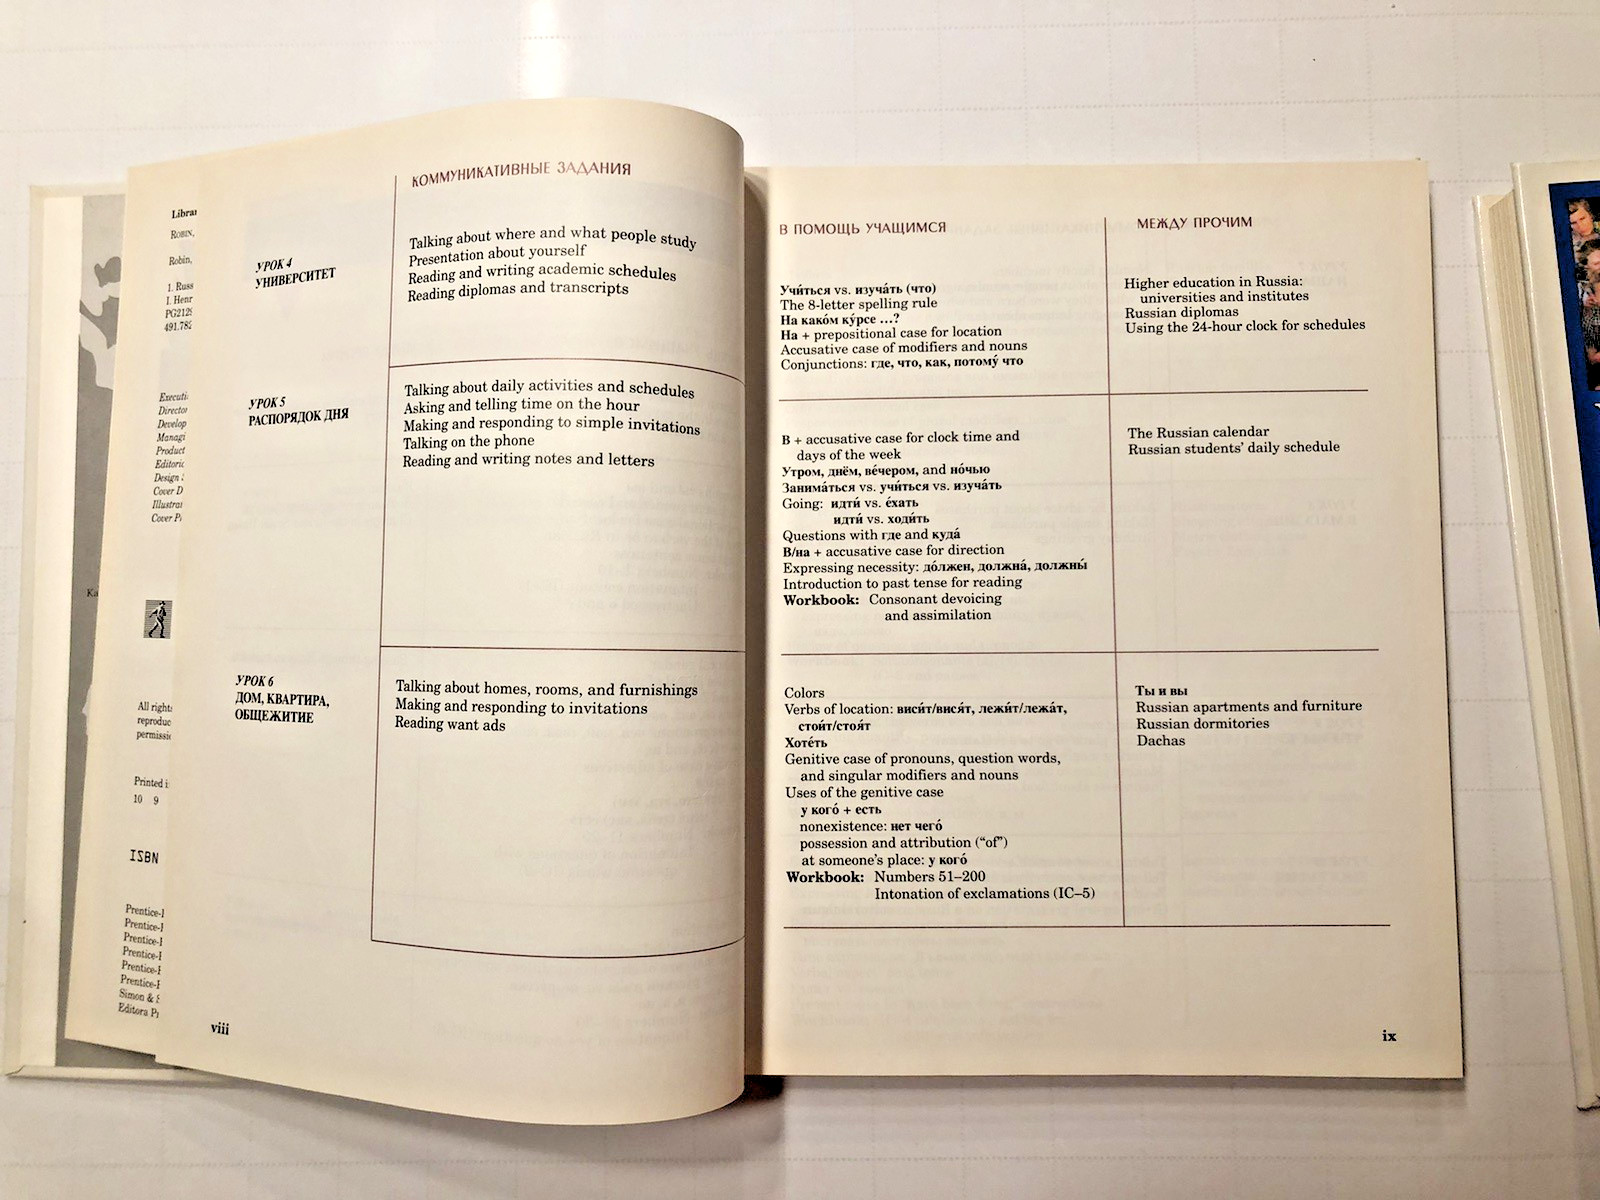 Librar
ROBIN,
Robin,
1. Russ
I. Henr
PG2129
491.782
Executi
Director
Develop
Managi
Product
Editoric
Design
Cover D
Illustrat
Cover P
Ka
All rights
reproduc
permissi
Printed i
10 9
ISBN
Prentice-H
Prentice-H
Prentice-H
Prentice-H
Prentice-H
Prentice-H
Simon & S
Editora Pr
КОММУНИКАТИВНЫЕ ЗАДАНИЯ
УРОК 4
УНИВЕРСИТЕТ
Talking about where and what people study
Presentation about yourself
Reading and writing academic schedules
Reading diplomas and transcripts
УРОК 5
РАСПОРЯДОК ДНЯ
Talking about daily activities and schedules
Asking and telling time on the hour
Making and responding to simple invitations
Talking on the phone
Reading and writing notes and letters
УРОК 6
ДОМ, КВАРТИРА,
ОБЩЕЖИТИЕ
Talking about homes, rooms, and furnishings
Making and responding to invitations
Reading want ads
viii
В ПОМОЩЬ УЧАЩИМСЯ
МЕЖДУ ПРОЧИМ
Учи́ться vs. изуча́ть (что)
The 8-letter spelling rule
На како́м ку́рсе ...?
На + prepositional case for location
Accusative case of modifiers and nouns
Conjunctions: где, что, как, потому́ что
Higher education in Russia:
universities and institutes
Russian diplomas
Using the 24-hour clock for schedules
В + accusative case for clock time and
days of the week
Утром, днём, ве́чером, and но́чью
Занима́ться vs. учи́ться vs. изуча́ть
Going: идти́ vs. е́хать
идти́ vs. ходи́ть
Questions with где and куда́
В/на + accusative case for direction
Expressing necessity: до́лжен, должна́, должны́
Introduction to past tense for reading
Workbook: Consonant devoicing
and assimilation
The Russian calendar
Russian students' daily schedule
Colors
Verbs of location: виси́т/вися́т, лежи́т/лежа́т,
стои́т/стоя́т
Хоте́ть
Genitive case of pronouns, question words,
and singular modifiers and nouns
Uses of the genitive case
у кого́ + есть
nonexistence: нет чего́
possession and attribution (“of”)
at someone's place: у кого́
Workbook: Numbers 51–200
Intonation of exclamations (IC–5)
Ты и вы
Russian apartments and furniture
Russian dormitories
Dachas
ix